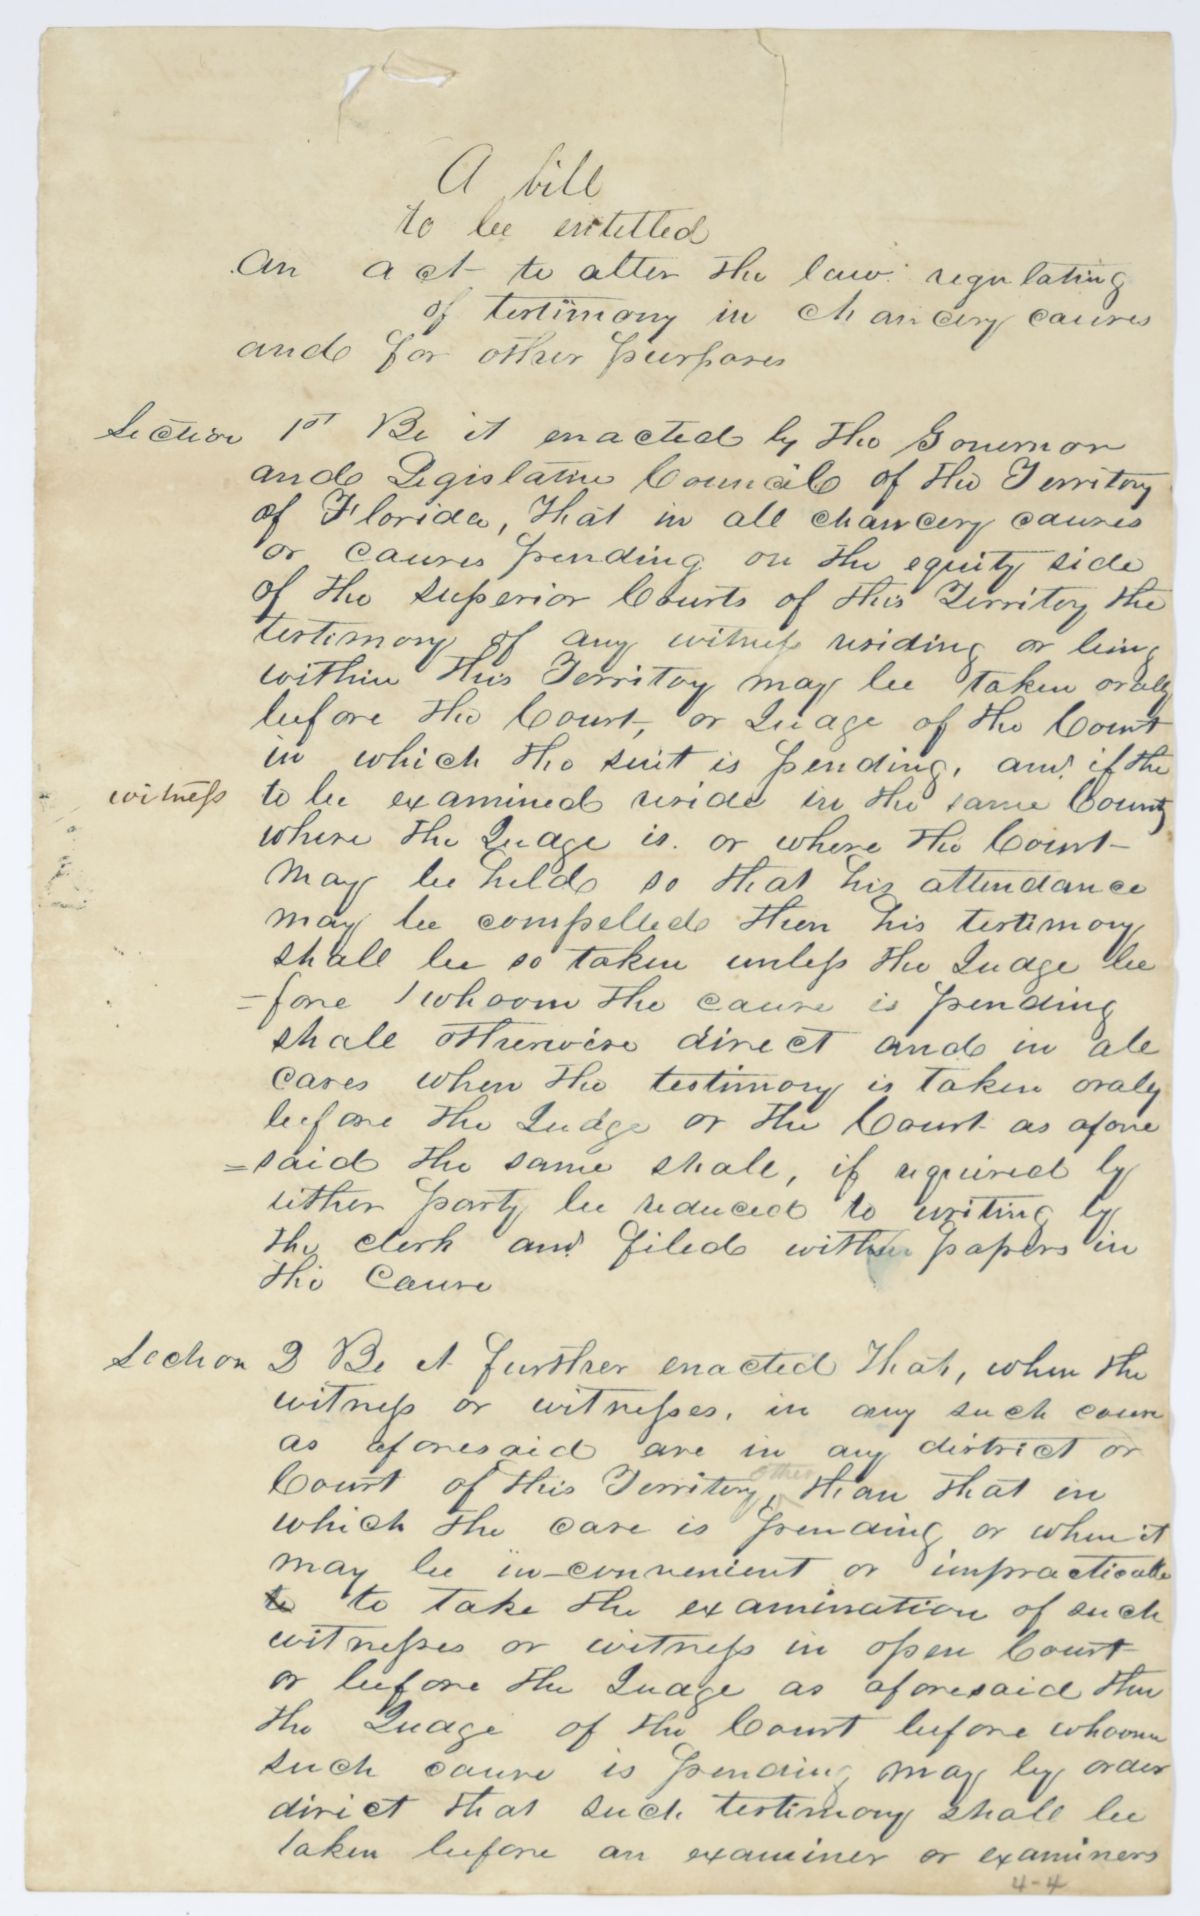 A bill
to be entitled
An act to alter the law regulating
of testimony in chancery causes
and for other purposes
Section 1st Be it enacted by the Governor
and Legislative Council of the Territory
of Florida, That in all chancery causes
or causes pending on the equity side
of the superior Courts of this Territory the
testimony of any witness residing or being
within this Territoy may be taken oraly
before the Court, or Judge of the Court
in which the suit is pending, and if the
witness to be examined reside in the same County
where the Judge is. or where the Court
may be held so that his attendance
may be compelled then his testimony
shall be so taken unless the Judge be
=fore whoom the cause is pending
shall otherwise direct and in all
cases when the testimony is taken oraly
before the Judge or the Court as afore
=said the same shall, if required by
either party be reduced to writing by
the clerk and filed with papers in
the Cause
Section 2 Be it further enacted That, when the
witness or witnesses, in any such cause
as aforesaid are in any district or
Court of this Territory, other than that in
which the case is pending or when it
may be in-convenient or impracticable
to to take the examination of such
witnesses or witness in open Court
or before the Judge as aforesaid then
the Judge of the Court before whoom
such cause is pending may by order
direct that such testimony shall be
taken before an examiner or examiners
4-4